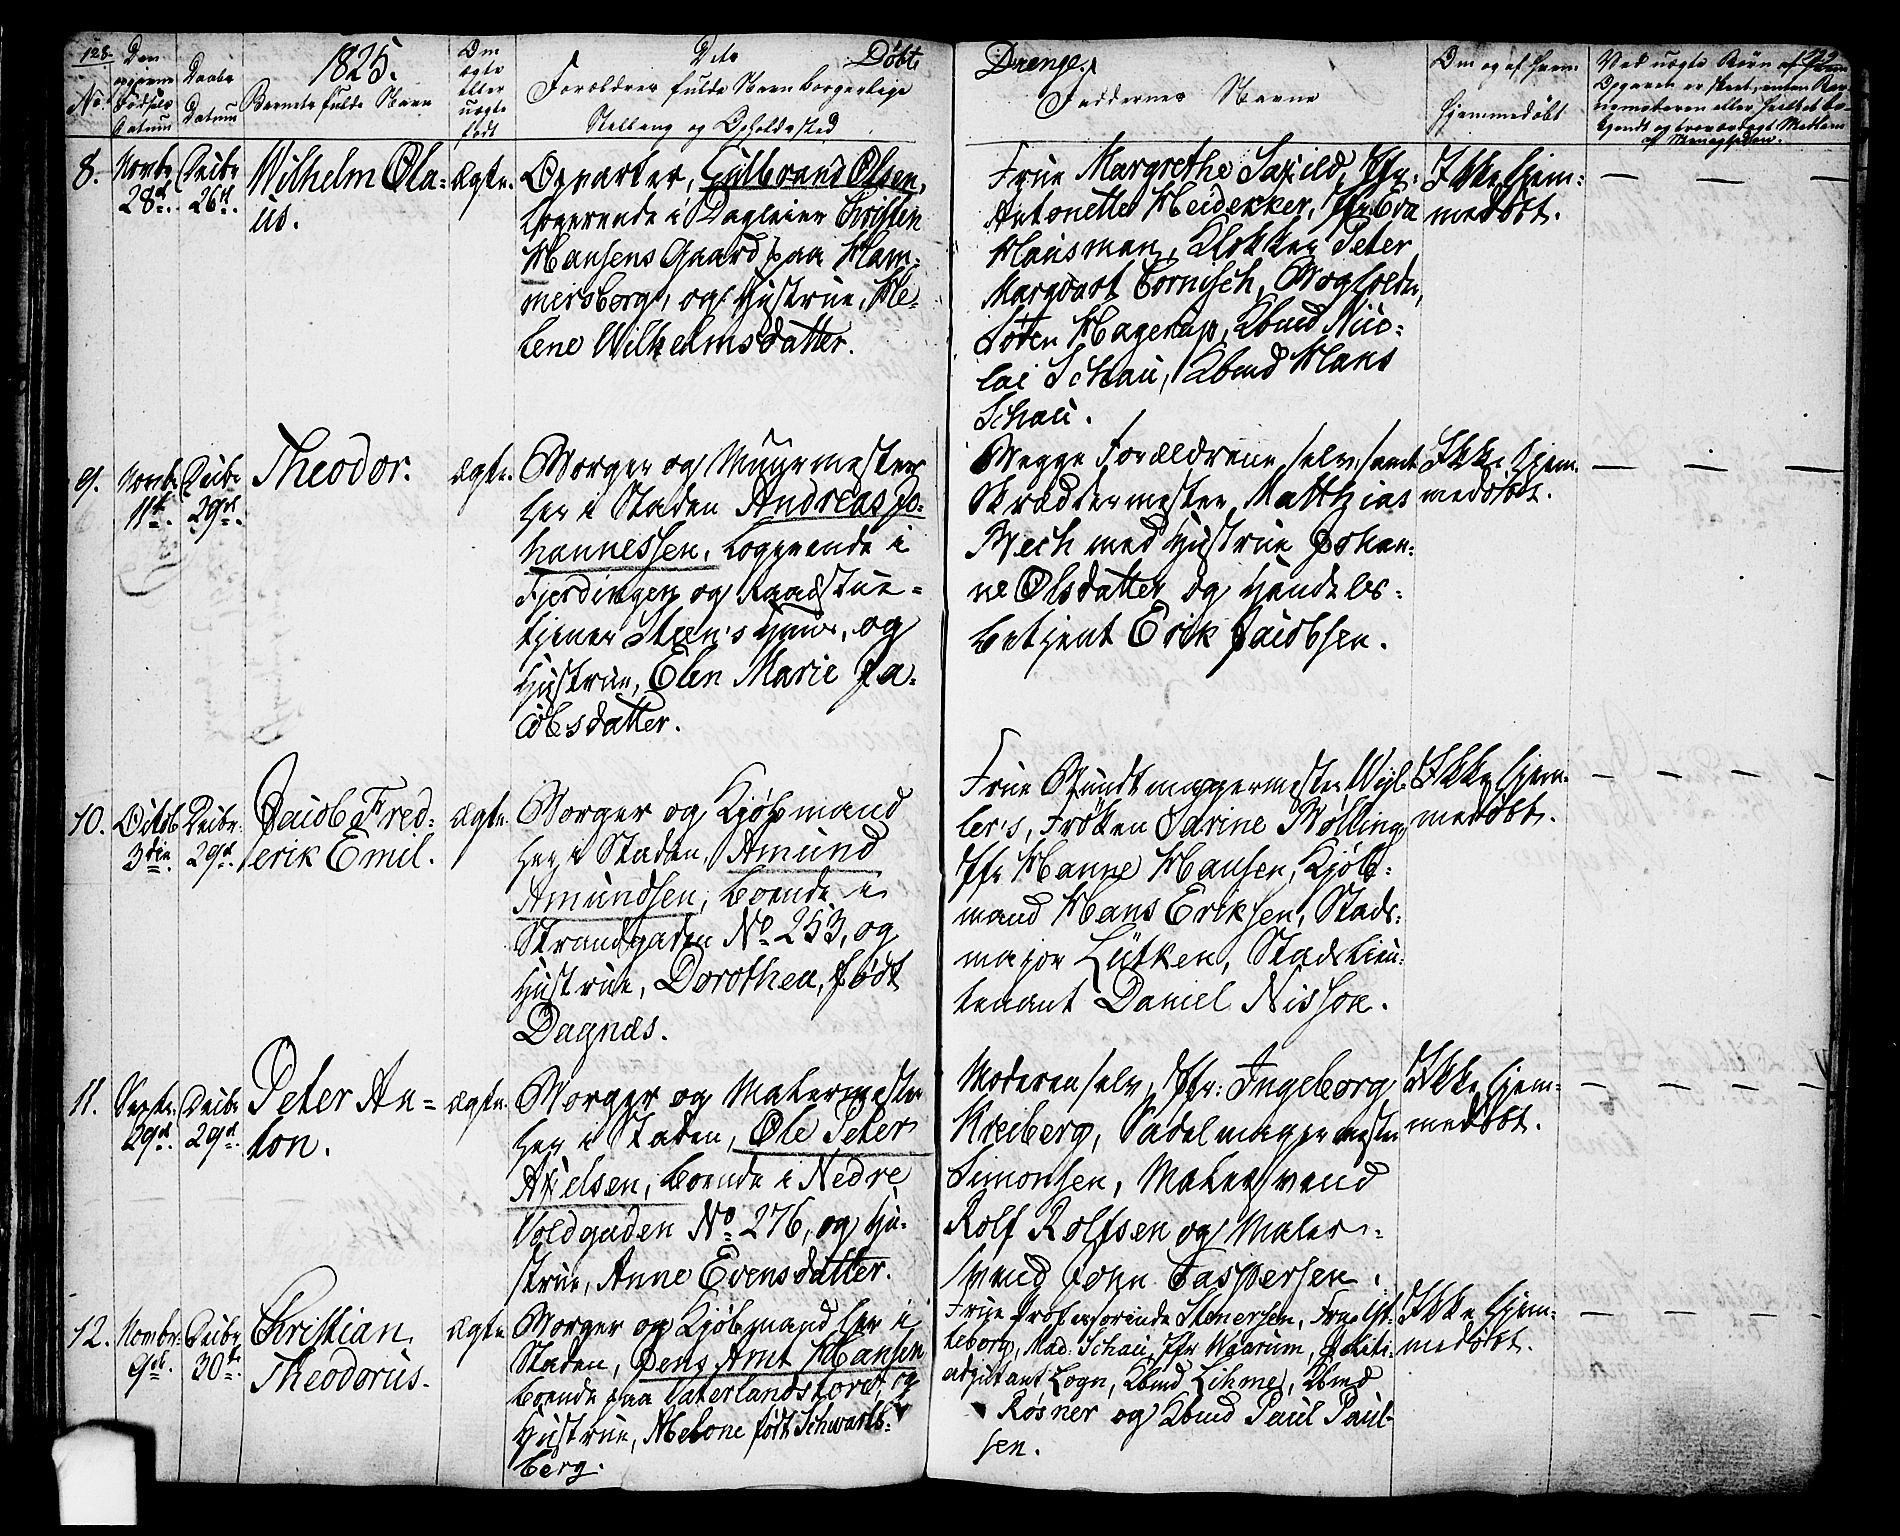 128.
Den
Daabs
1825.
Om
ægte
eller
uægte
født
Dito
Døbte
Drenge.
No.
Fødsels
Datum
Datum
Barnets fulde Navn
Forældres fulde Navn borgerlige
Stilling og Opholdssted
Faddernes Navne
Om og af hvem
hjemmedøbt
Ved uægte Børn
8.
Novbr
28d.
Decbr
26d.
Wilhelm Ola=
us.
ægte.
Opvarter, Gulbrand Olsen,
logerende i Dagleier Christen
Hansens Gaard paa Ham=
mersborg, og Hustrue, He=
lene Wilhelmsdatter.
Frue Margrethe Saxild, Jfr.
Antonette Heidekker, Jfr Eva
Hansman, Klokker Peter
Margvart Cornisch,
Søren Hagerup, Kbmd Nico=
lai Schau, Kbmd Hans
Schau.
Ikke hjem=
medøbt.
— — —
9.
Novbr
11te.
Decbr
29d.
Theodor.
ægte.
Borger og Muurmester
her i Staden Andreas Jo=
hannessen, logerende i
Fjerdingen og Raadstue=
tjener Steen's Huus, og
Hustrue, Elen Marie Ja=
cobsdatter.
Begge Forældrene selv, samt
Skræddermester Matthias
Bech med Hustrue Johan=
ne Olsdatter og Handels=
betjent Erik Jacobsen.
Ikke hjem=
medøbt.
— — —
10.
Octob
3die
Decbr.
29d.
Jacob Fred=
erik Emil.
ægte.
Borger og Kjøbmand
her i Staden, Amund
Amundsen, boende i
Strandgaden No. 253, og
Hustrue, Dorothea, født
Dagnæs.
Frue Bundtmagermester Weyl=
ler's, Frøken Sarine Mølling
Jfr Hanne Hansen, Kjøb=
mand Hans Eriksen, Stads=
major Lütken, Stadslieu=
tenant Daniel Nisson.
Ikke hjem=
medøbt.
— — —
11.
Septbr.
29d.
Decbr
29d.
Peter An=
ton.
ægte.
Borger og Malermester
her i Staden, Ole Peter
Axelsen, boende i Nedre
Voldgaden No. 276, og Hu=
strue, Anne Evensdatter.
Moderen selv, Jfr: Ingeborg
Kreiberg, Sadelmagermester
Simonsen, Malersvend
Rolf Rolfsen og Maler=
svend John Caspersen.
Ikke hjem=
medøbt.
— — —
12.
Novbr.
9de.
Decbr
30te.
Christian
Theodorus.
ægte.
Borger og Kjøbmand her i
Staden, Jens Arnt Hansen
boende paa Vaterlandstorv, og
Hustrue, Malone født Schwartz=
berg.
Frue Professorinde Stenersen, Frue Ut=
teborg, Mad: Schau, Jfr Waarum, Politi=
adjutant Logn, Kbmd Lihme, Kbmd
Røsner og Kbmd Paul Paul=
sen.
Ikke hjem=
medøbt.
— — —